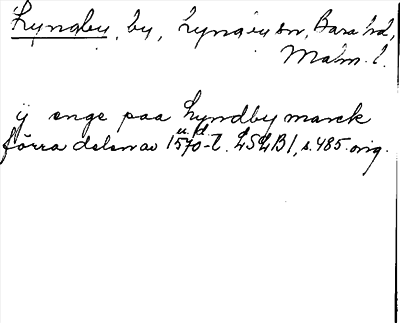 Lyngby, by, Lyngby sn, Bara hd,
Malm. l.
ij enge paa Lyndby marck
u. d.
förra delen av 1570-t. LSLB 1, s. 485. orig.